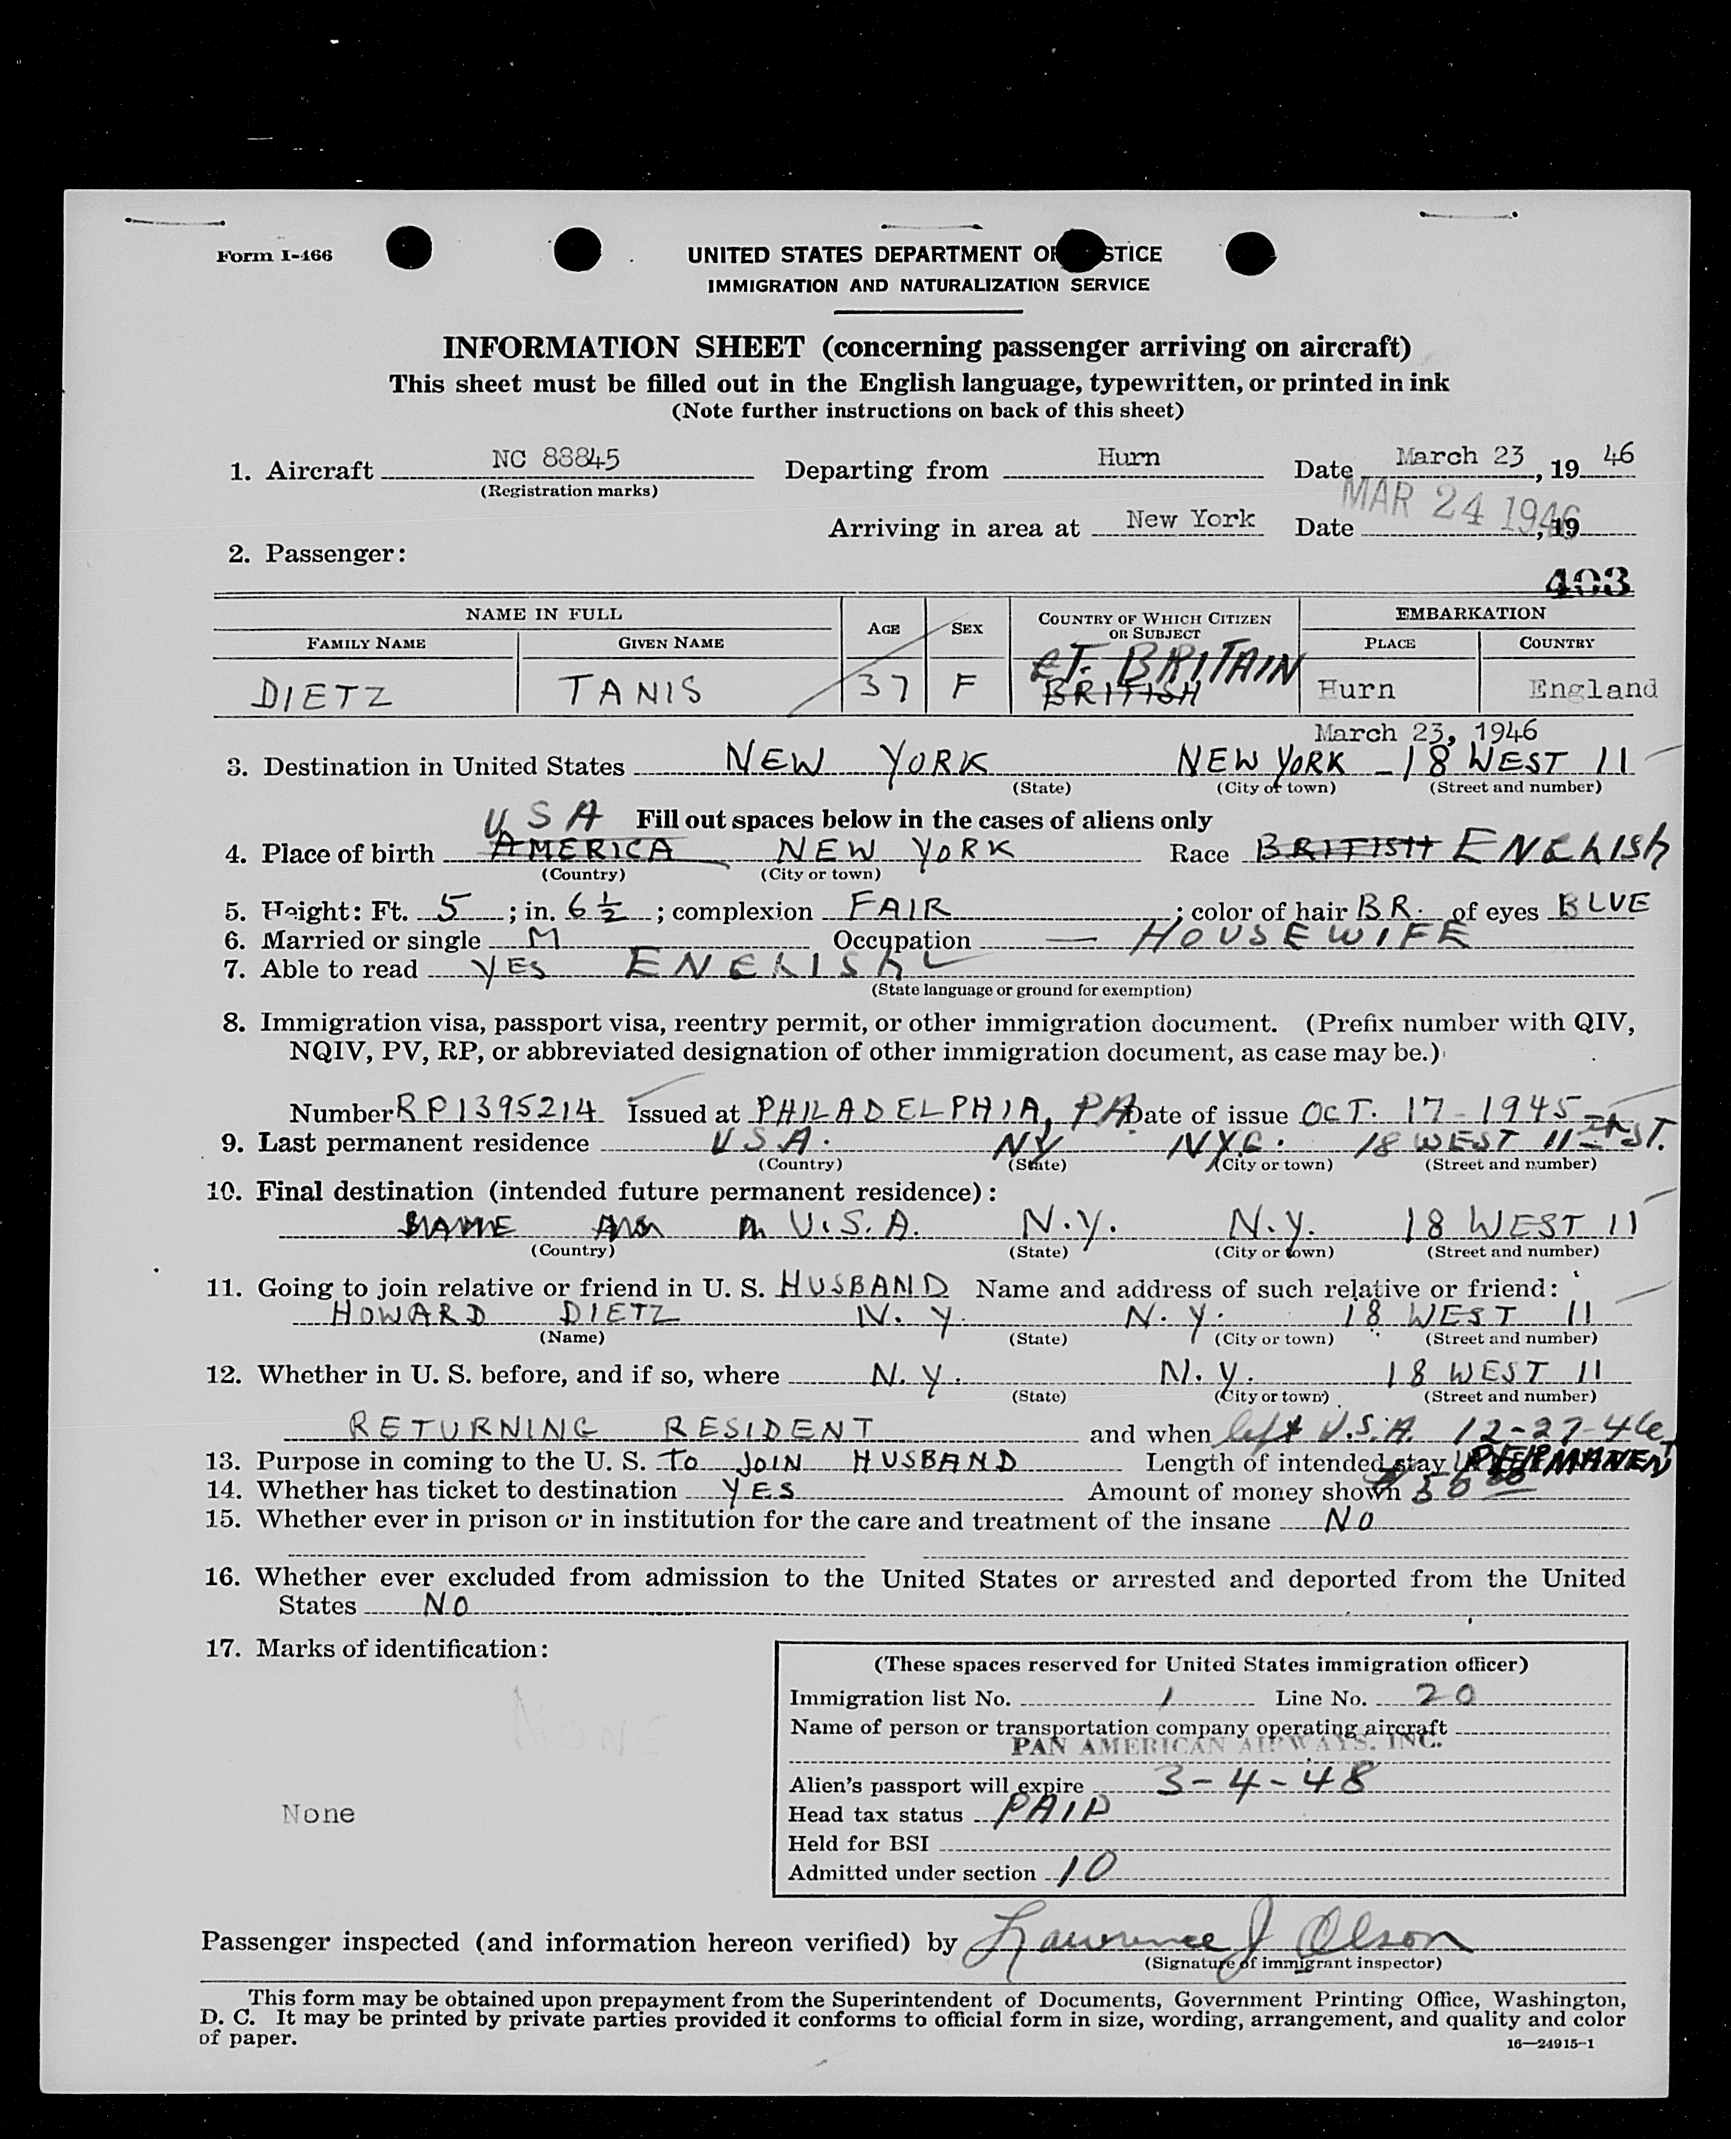 Form I-466
UNITED STATES DEPARTMENT OF STICE
IMMIGRATION AND NATURALIZATION SERVICE
INFORMATION SHEET (concerning passenger arriving on aircraft)
This sheet must be filled out in the English language, typewritten, or printed in ink
(Note further instructions on back of this sheet)
1. Aircraft NC 88845 Departing from Hurn Date March 23, 19 46
(Registration marks)
MAR 24 1946
Arriving in area at New York Date , 19
2. Passenger:
403
NAME IN FULL AGE SEX COUNTRY OF WHICH CITIZEN OR SUBJECT EMBARKATION
FAMILY NAME GIVEN NAME PLACE COUNTRY
GT. BRITAIN
DIETZ TANIS 37 F BRITISH Hurn England
March 23, 1946
3. Destination in United States NEW YORK NEW YORK - 18 WEST 11
(State) (City or town) (Street and number)
USA Fill out spaces below in the cases of aliens only
4. Place of birth AMERICA NEW YORK Race BRITISH ENGLISH
(Country) (City or town)
5. Height: Ft. 5; in. 6 1/2; complexion FAIR; color of hair BR. of eyes BLUE
6. Married or single M Occupation — HOUSEWIFE
7. Able to read YES ENGLISH
(State language or ground for exemption)
8. Immigration visa, passport visa, reentry permit, or other immigration document. (Prefix number with QIV,
NQIV, PV, RP, or abbreviated designation of other immigration document, as case may be.)
Number RP1395214 Issued at PHILADELPHIA, PA. Date of issue OCT. 17 - 1945
9. Last permanent residence U.S.A. NY NYC. 18 WEST 11th ST.
(Country) (State) (City or town) (Street and number)
10. Final destination (intended future permanent residence):
U.S.A. N.Y. N.Y. 18 WEST 11
(Country) (State) (City or town) (Street and number)
11. Going to join relative or friend in U. S. HUSBAND Name and address of such relative or friend:
HOWARD DIETZ N.Y. N.Y. 18 WEST 11
(Name) (State) (City or town) (Street and number)
12. Whether in U. S. before, and if so, where N.Y. N.Y. 18 WEST 11
(State) (City or town) (Street and number)
RETURNING RESIDENT and when left U.S.A. 12-27-46
13. Purpose in coming to the U. S. TO JOIN HUSBAND Length of intended stay PERMANEN
14. Whether has ticket to destination YES Amount of money shown $50 00
15. Whether ever in prison or in institution for the care and treatment of the insane NO
16. Whether ever excluded from admission to the United States or arrested and deported from the United
States NO
17. Marks of identification:
None
(These spaces reserved for United States immigration officer)
Immigration list No. 1 Line No. 20
Name of person or transportation company operating aircraft
PAN AMERICAN AIRWAYS, INC.
Alien's passport will expire 3-4-48
Head tax status PAID
Held for BSI
Admitted under section 10
Passenger inspected (and information hereon verified) by Lawrence J Olson
(Signature of immigrant inspector)
This form may be obtained upon prepayment from the Superintendent of Documents, Government Printing Office, Washington,
D. C. It may be printed by private parties provided it conforms to official form in size, wording, arrangement, and quality and color
of paper.
16—24915-1